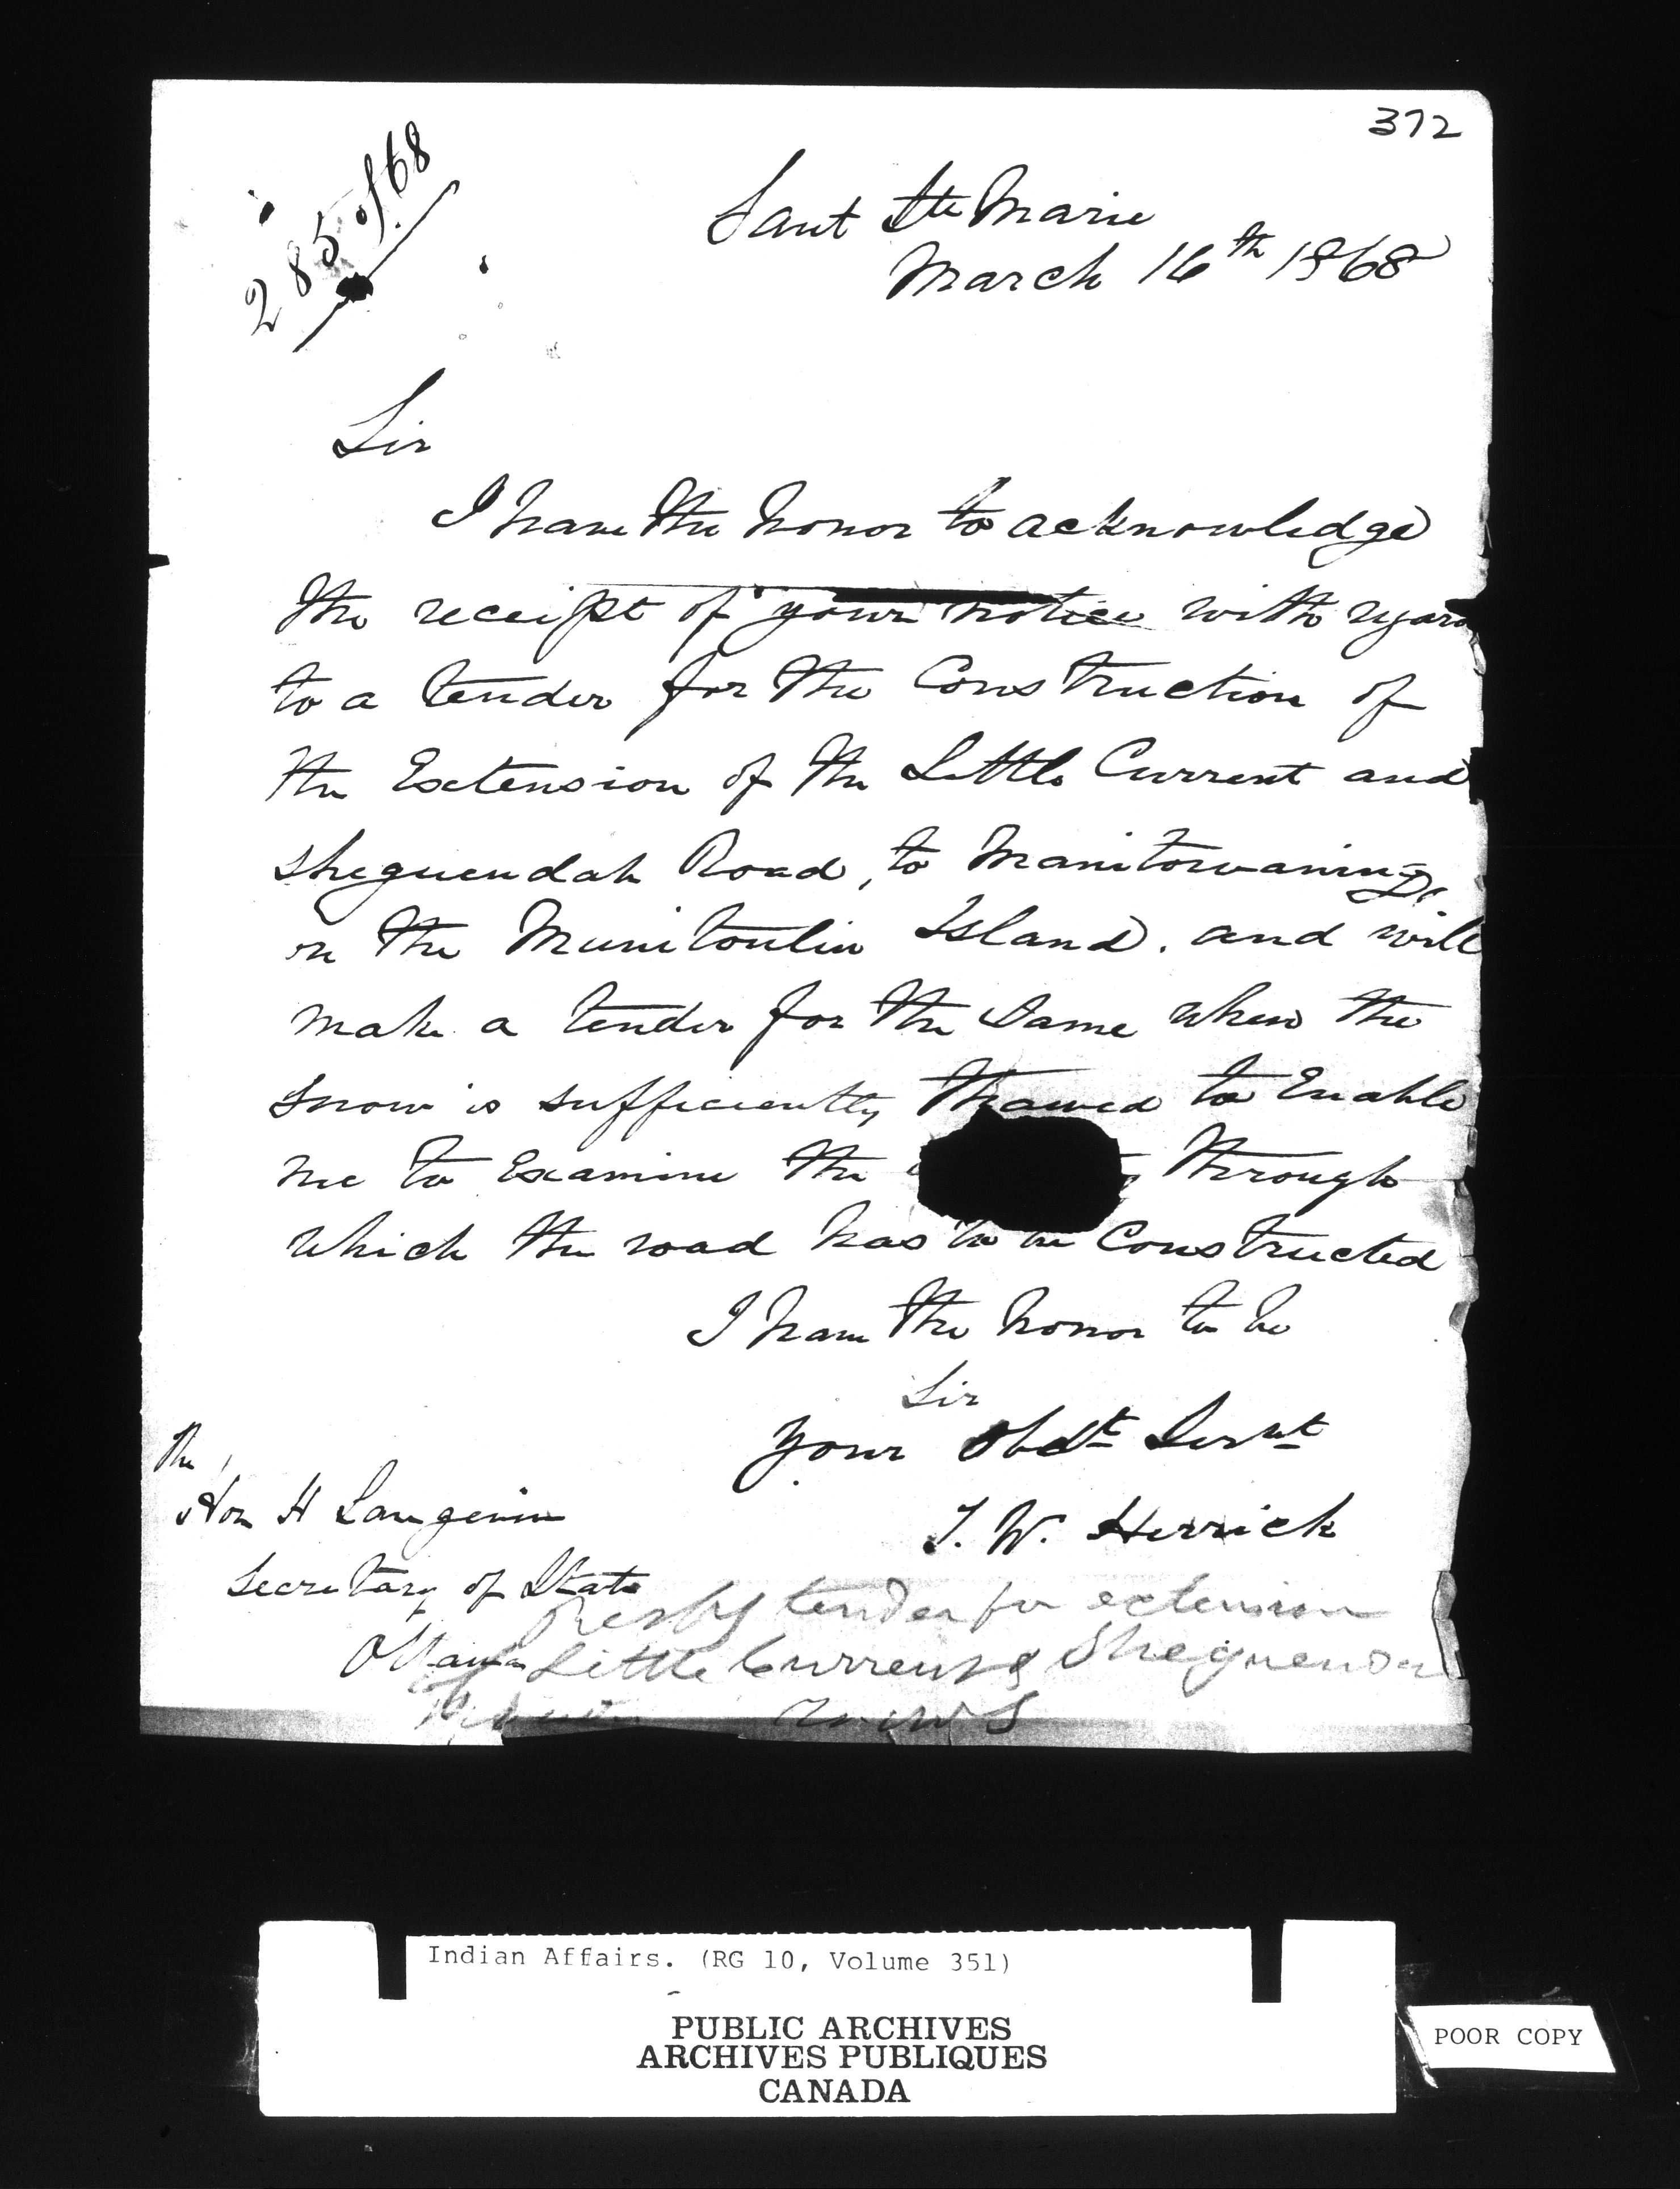 372
285 of 68
Saut Ste Marie
March 16th 1868
Sir
I have the honor to acknowledge
the receipt of your notice with regard
to a tender for the Construction of
the Extension of the Little Current and
Sheguendah Road, to Manitowaning
on the Munitoulin Island. and will
make a tender for the Same when the
snow is sufficiently thawed to Enable
me to Examine the through
which the road has to be Constructed
I have the honor to be
Sir
your Obdt Servt
T. W. Herrick
The
Hon H Langevin
Secretary of State
Ottawa
tender for extension
of Little Current & Sheguenda
Indian Affairs. (RG 10, Volume 351)
PUBLIC ARCHIVES
ARCHIVES PUBLIQUES
CANADA
POOR COPY